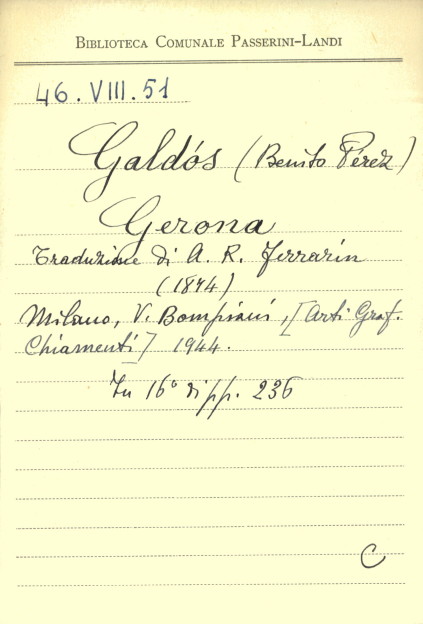 BIBLIOTECA COMUNALE PASSERINI-LANDI
46.VIII.51
Galdós (Benito Pérez)
Gerona
Traduzione di A. R. Ferrarin
(1874)
Milano, V. Bompiani, [Arti Graf.
Chiamenti] 1944.
In 16° di pp. 236
C